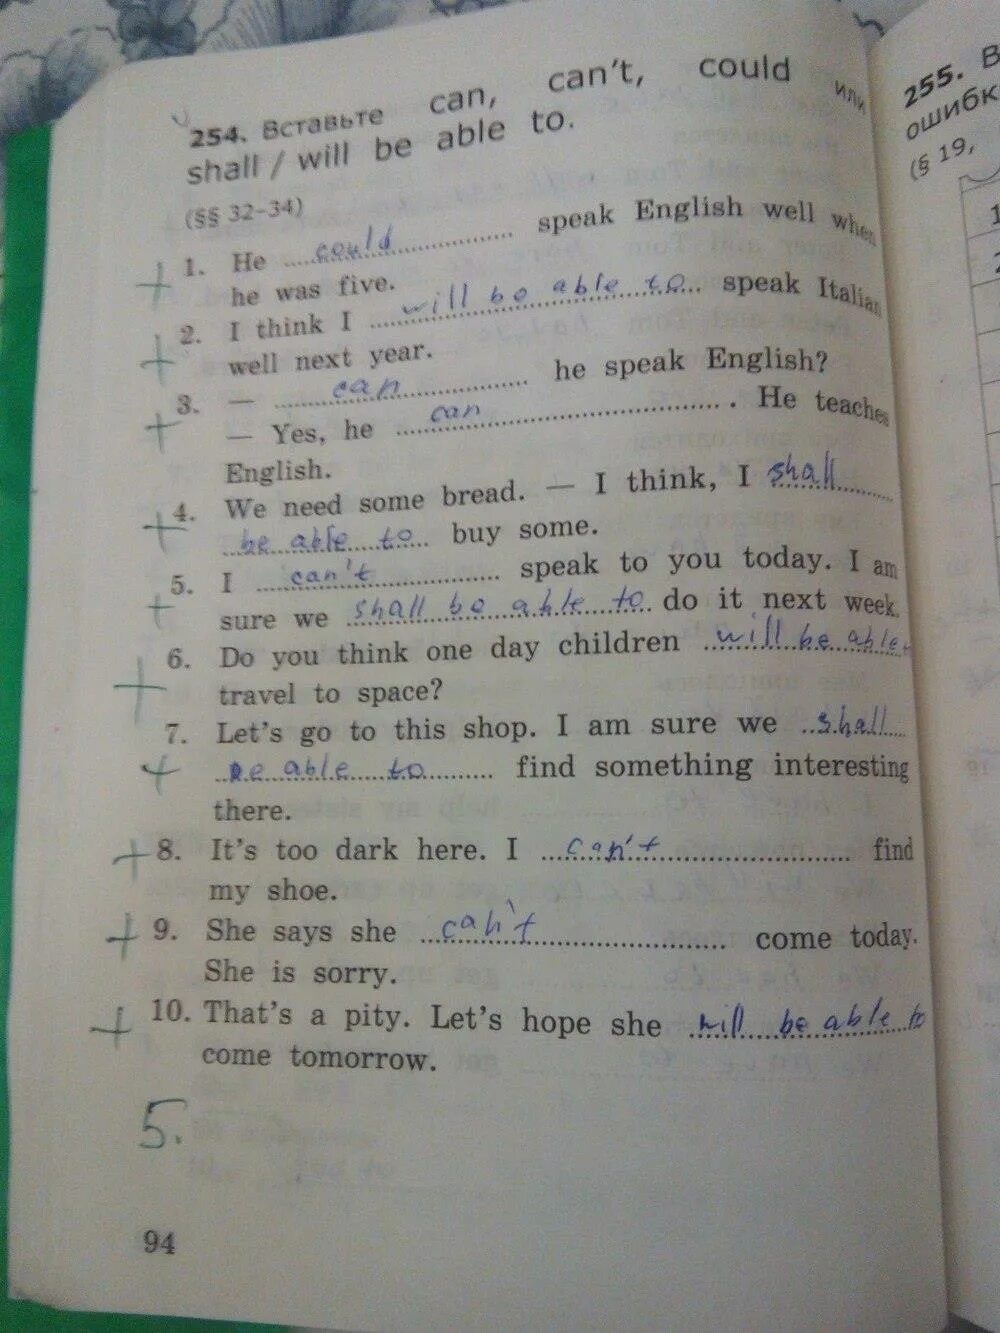 254. Вставьте can, can't, could или
shall / will be able to.
(§§ 32–34)
+ 1. He could speak English well when
he was five.
+ 2. I think I will be able to speak Italian
well next year.
+ 3. — can he speak English?
— Yes, he can. He teaches
English.
+ 4. We need some bread. — I think, I shall
be able to buy some.
+ 5. I can't speak to you today. I am
sure we shall be able to do it next week.
+ 6. Do you think one day children will be able
travel to space?
+ 7. Let's go to this shop. I am sure we shall
be able to find something interesting
there.
+ 8. It's too dark here. I can't find
my shoe.
+ 9. She says she can't come today.
She is sorry.
+ 10. That's a pity. Let's hope she will be able to
come tomorrow.
5.
94
255. В
ошибк
(§ 19,
1
2